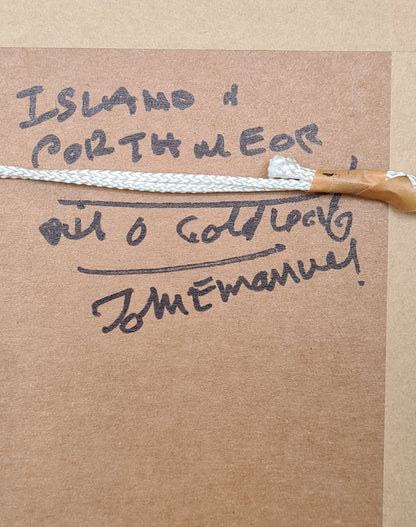 ISLAND &
PORTHMEOR
oil & Gold leaf
Tom Emanuel